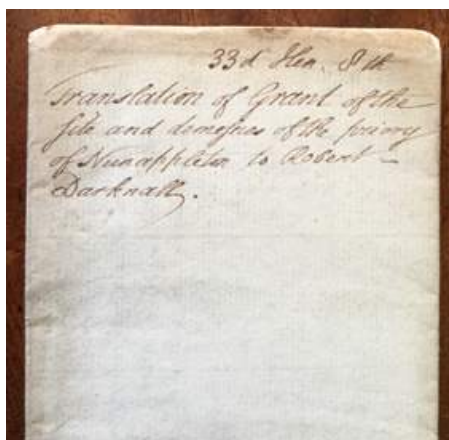 33d Hen. 8th
Translation of Grant of the
site and demesnes of the priory
of Nunappleton to Robert
Darknall.